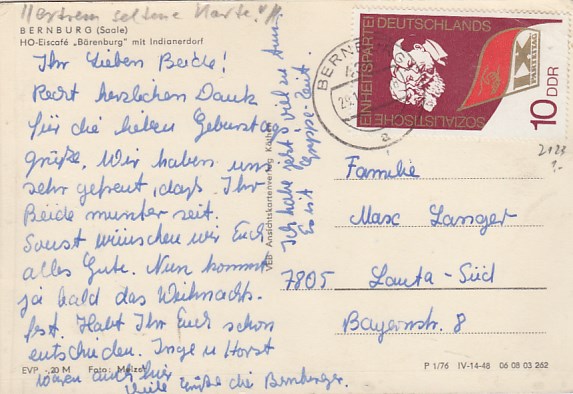 Extrem seltene Karte!
BERNBURG (Saale)
HO-Eiscafé „Bärenburg" mit Indianerdorf
Ihr Lieben Beide!
Recht herzlichen Dank
für die lieben Geburstag
grüße. Wir haben uns
sehr gefreut, daß Ihr
Beide munter seit.
Sonst wünschen wir Euch
alles Gute. Nun kommt
ja bald das Weihnachts-
fest. Habt Ihr Euch schon
entschieden. Inge u Horst
waren auch hier
Viele Grüße die Bernburger.
Ich habe jetzt viel zu tun.
Es ist Grippe-Zeit.
VEB Ansichtskartenverlag Köthen
EVP -,20 M Foto: Melzer
P 1/76 IV-14-48 06 08 03 262
BERNBURG
a
SOZIALISTISCHE EINHEITSPARTEI DEUTSCHLANDS
IX.
PARTEITAG
10 DDR
2123
1.-
Familie
Max Langer
7805 Lauta-Süd
Bayernstr. 8